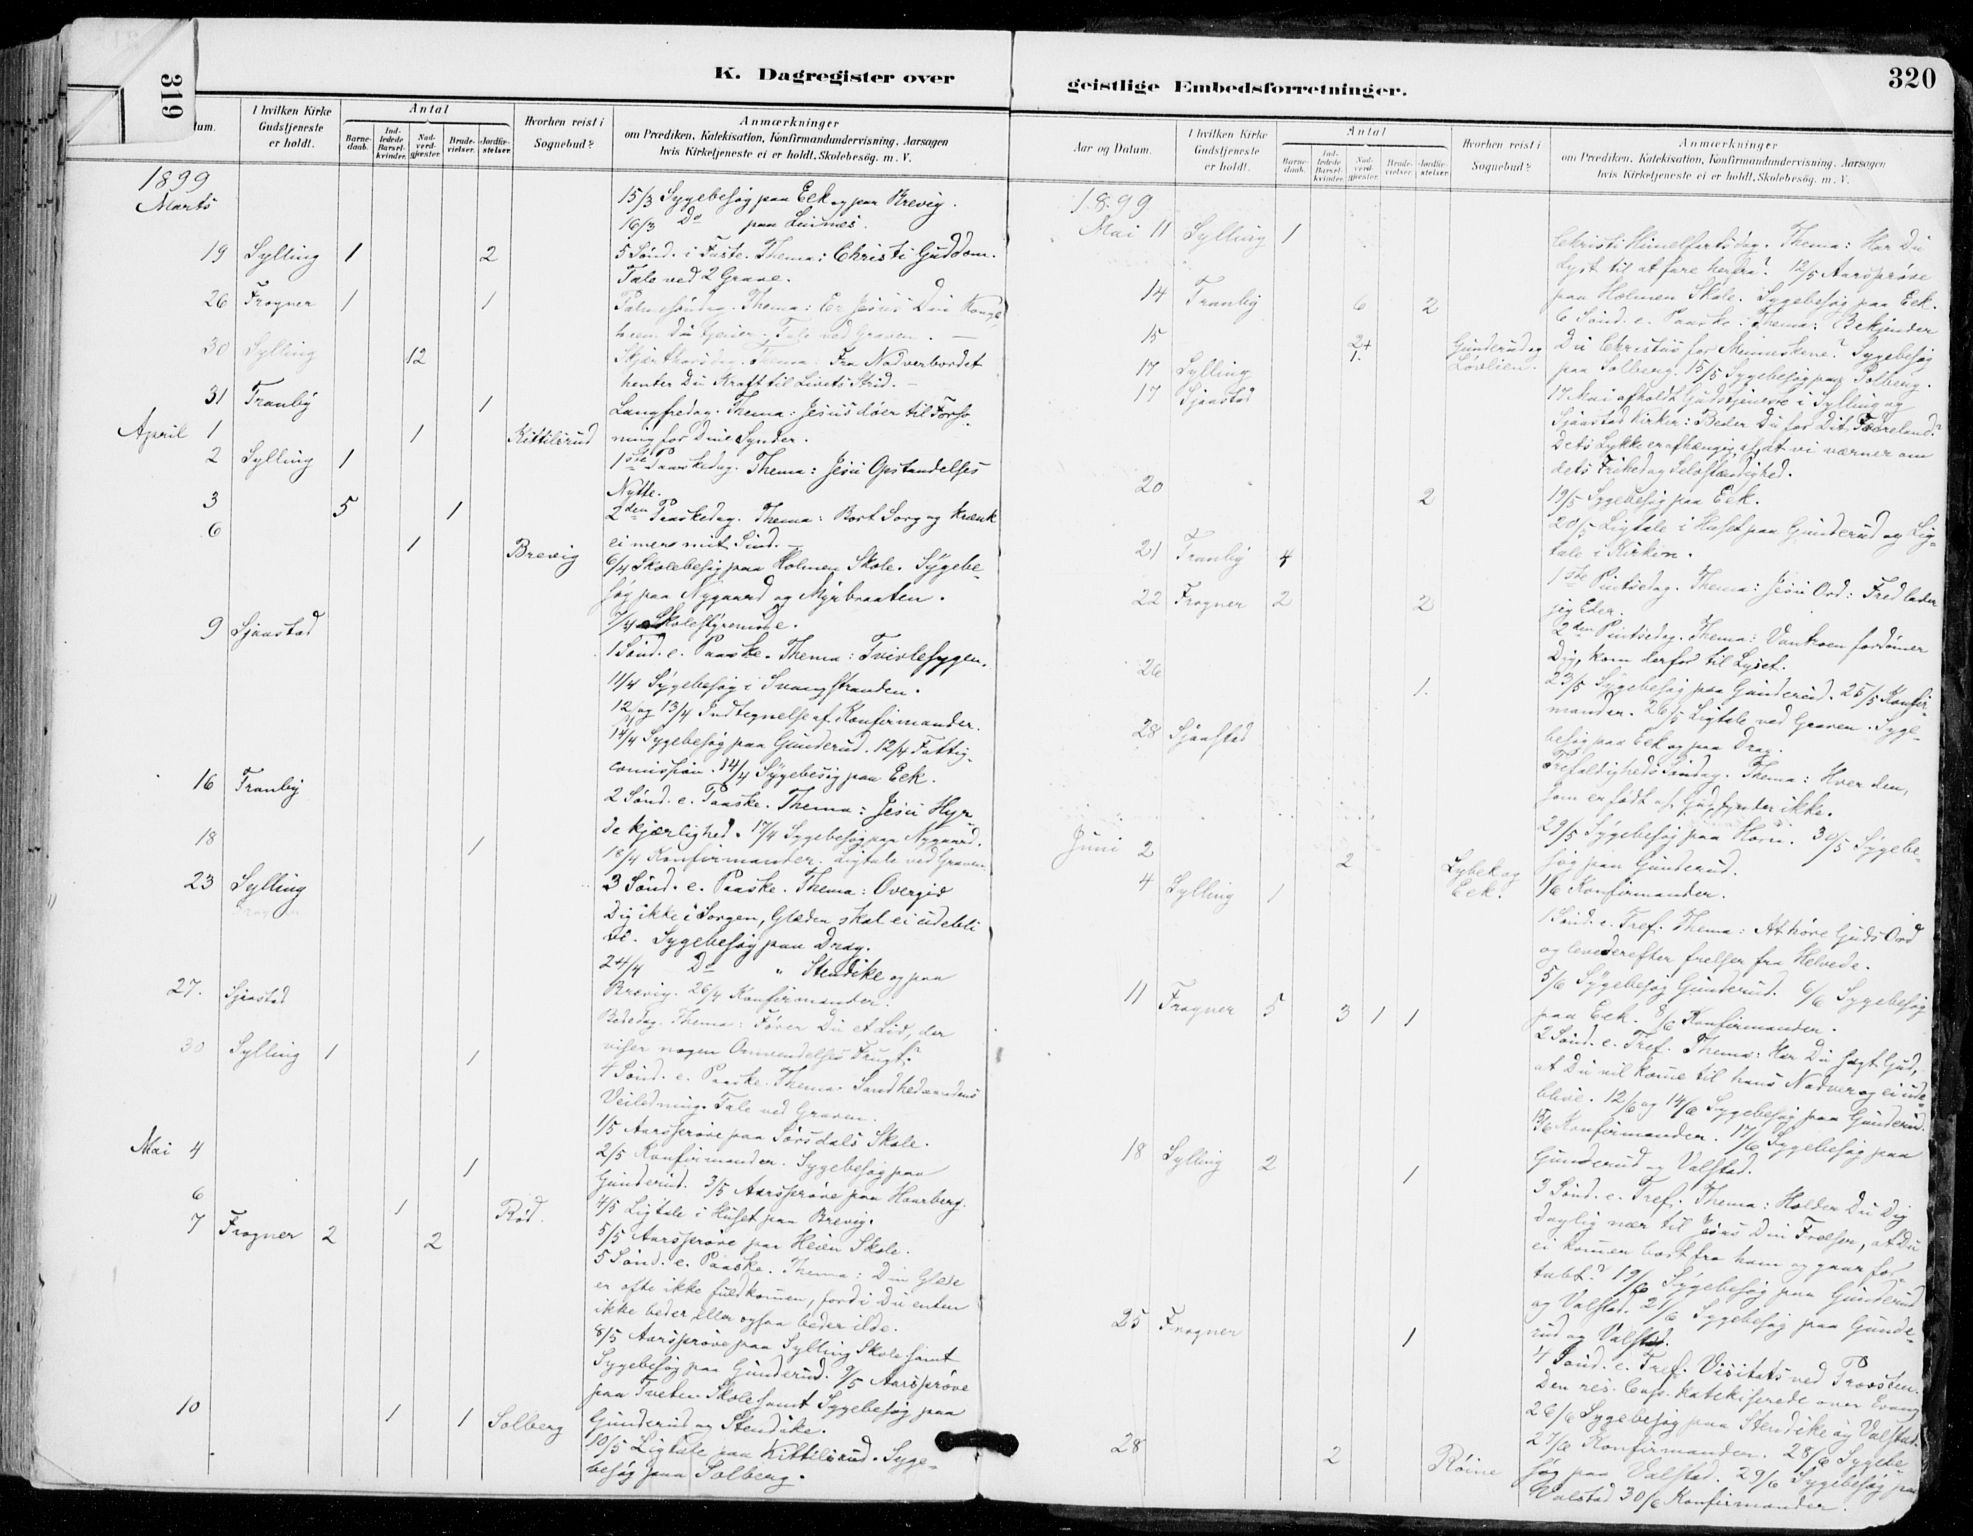 319
K. Dagregister over
Datum.
I hvilken Kirke Gudstjeneste er holdt.
Antal
Barne-daab.
Ind-ledede Barsel-kvinder.
Nad-verd-gjæster.
Brude-vielser.
Jordfæ-stelser.
Hvorhen reist i Sognebud?
Anmærkninger
om Prædiken, Katekisation, Konfirmandundervisning, Aarsagen
hvis Kirketjeneste ei er holdt, Skolebesøg. m. V.
1899
Marts 15/3 Sygebesøg paa Eek og paa Brevig.
16/3 Do paa Linnæs.
19 Sylling 1 2 5 Sønd. i Faste. Thema: Christi Guddom.
Tale ved 2 Grave.
26 Frogner 1 1 Palmesøndag. Thema: Er Jesus Din Konge
hvem Du tjener. Tale ved Graven.
30 Sylling 12 Skjærthorsdag. Thema: Fra Nadverbordet
henter Du Kraft til Livets Strid.
31 Tranby 1 Langfredag. Thema: Jesus døer til Forso-
April 1 1 Kittilsrud ning for Dine Synder.
2 Sylling 1 1ste Paaskedag. Thema: Jesu Opstandelses
Nytte.
3 5 1 2den Paaskedag. Thema: Bort Sorg og krænk
ei mere mit Sind.
6 1 Brevig 6/4 Skolebesøg paa Holmen Skole. Sygebe-
søg paa Nygaard og Myrbraaten.
7/4 Skolestyremøde.
9 Sjaastad 1 Sønd. e. Paaske. Thema: Tvivlesygen.
11/4 Sygebesøg i Svangstranden.
12/4 og 13/4 Indtegnelse af Konfirmander.
14/4 Sygebesøg paa Gunderud. 12/4 Fattig-
comission. 14/4 Sygebesøg paa Eek.
16 Tranby 2 Sønd. e. Paaske. Thema: Jesu Hyr-
de kjærlighed. 17/4 Sygebesøg paa Nygaard.
18 1 18/4 Konfirmander. Ligtale ved Graven
23 Sylling 3 Sønd. e. Paaske. Thema: Overgiv
Dig ikke i Sorgen, Glæden skal ei udebli
ve. Sygebesøg paa Drag.
24/4 Do " Stendike og paa
Brevig. 26/4 Konfirmander.
27. Sjaastad Bededag. Thema: Fører Du et Liv, der
viser nogen Omvendelses Frugt?
30 Sylling 1 1 4 Sønd. e. Paaske. Thema: Sandhedsaandens
Veiledning. Tale ved Graven.
1/5 Aarsprøve paa Sørsdals Skole.
Mai 4 1 2/5 Konfirmander. Sygebesøg paa
Gunderud. 3/5 Aarsprøve paa Haarberg.
6 1 Rød. 4/5 Ligtale i Huset paa Brevig.
7 Frogner 2 2 5/5 Aarsprøve paa Heien Skole.
5 Sønd. e. Paaske. Thema: Din Glæde
er ofte ikke fuldkommen, fordi Du enten
ikke beder eller ogsaa beder ilde.
8/5 Aarsprøve paa Sylling Skole samt
Sygebesøg paa Gunderud. 9/5 Aarsprøve
paa Tveten Skole samt Sygebesøg paa
10 1 1 Solberg Gunderud og Stendike.
10/5 Ligtale paa Kittilsrud. Syge-
besøg paa Solberg.
geistlige Embedsforretninger.
320
Aar og Datum.
I hvilken Kirke Gudstjeneste er holdt.
Antal
Barne-daab.
Ind-ledede Barsel-kvinder.
Nad-verd-gjæster.
Brude-vielser.
Jordfæ-stelser.
Hvorhen reist i Sognebud?
Anmærkninger
om Prædiken, Katekisation, Konfirmandundervisning, Aarsagen
hvis Kirketjeneste ei er holdt, Skolebesøg. m. V.
1899
Mai 11 Sylling 1 Christi Himelfartsdag. Thema: Har Du
Lyst til at fare herfra? 12/5 Aarsprøve
paa Holmen Skole. Sygebesøg paa Eek.
14 Tranby 6 2 6 Sønd. e. Paaske. Thema: Bekjender
15 2+1. Gunderud og Løvlien. Du Christus for Menneskene? Sygebesøg
paa Solberg. 15/5 Sygebesøg paa Solberg.
17 Sylling 17 Mai afholdt Gudstjeneste i Sylling og
17 Sjaastad Sjaastad Kirker: Beder Du for Dit Fædreland?
Dets Lykke er afhængig af, at vi værner om
dets Frihed og Selvstændighed.
20 2 19/5 Sygebesøg paa Eek.
20/5 Ligtale i Huset paa Gunderud og Lig-
tale i Kirken.
21 Tranby 4 1ste Pintsedag. Thema: Jesu Ord: Fred lader
jeg Eder.
22 Frogner 2 2 2den Pintsedag. Thema: Vantroen fordømer
Dig, kom derfor til Lyset.
26 1. 23/5 Sygebesøg paa Gunderud. 25/5 Konfir-
mander. 26/5 Ligtale ved Graven. Syge-
besøg paa Eek og paa Drag.
28 Sjaastad Trefaldigheds Søndag. Thema: Hver den,
som er født af Gud synder ikke.
29/5 Sygebesøg paa Horn. 30/5 Sygebe-
Juni 2 2 Lybek og Eek. søg paa Gunderud.
1/6 Konfirmander.
4 Sylling 1 1 Sønd. e. Tref. Thema: At høre Guds Ord
og leve derefter frelser fra Helvede.
5/6 Sygebesøg Gunderud. 6/6 Sygebesøg
paa Eek. 8/6 Konfirmander.
11 Frogner 5 3 1 1 2 Sønd. e. Tref. Thema: Har Du sagt Gud,
at Du vil komme til hans Nadver og ei ude-
blive. 12/6 og 14/6 Sygebesøg paa Gunderud.
15/6 Konfirmander. 17/6 Sygebesøg paa
Gunderud og Valstad.
18 Sylling 2 1 3 Sønd. e. Tref. Thema: Holder Du Dig
daglig nær til Jesus Din Frelser, at Du
ei kommer bort fra ham og gaar for-
tabt? 19/6 Sygebesøg paa Gunderud
og Valstad. 21/6 Sygebesøg paa Gunde-
rud og Valstad.
25 Frogner 1 4 Sønd. e. Tref. Visitats ved Provsten.
Den res. Cap. katekiserede over Evang.
26/6 Sygebesøg paa Stendike og Valstad.
28 2 Røine 27/6 Konfirmander. 28/6 Sygebe-
søg paa Valstad. 29/6 Sygebesøg paa
Valstad 30/6 Konfirmander.